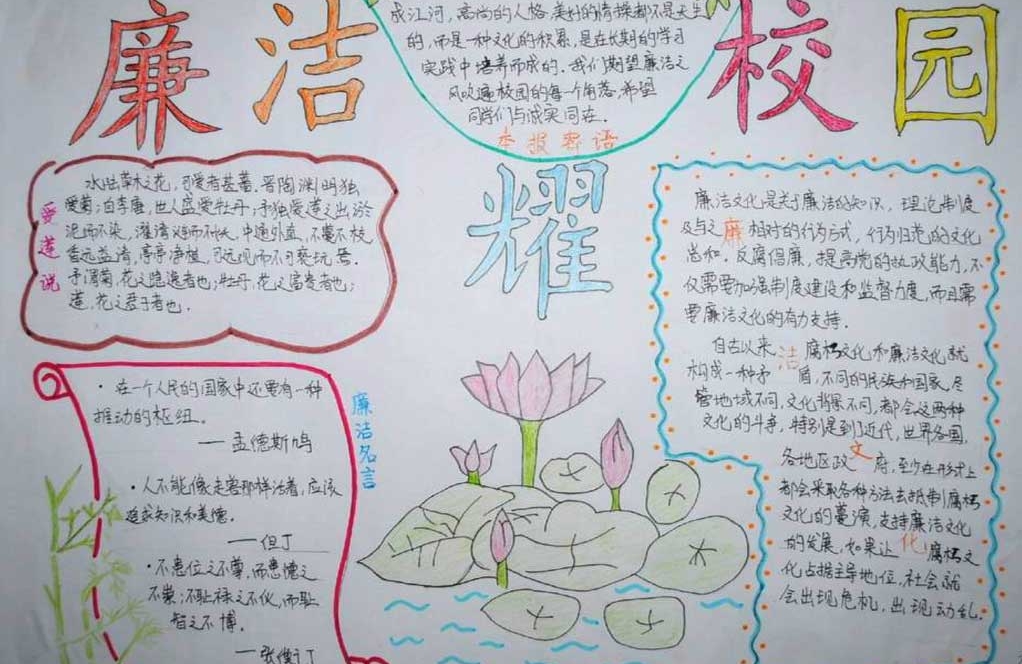 廉洁
校园
耀
成江河,高尚的人格,美好的情操都不是天生
的,而是一种文化的积累,是在长期的学习
实践中培养而成的.我们期望廉洁之
风吹遍校园的每个角落,希望
同学们与诚实同在.
本报寄语
爱莲说
水陆草木之花,可爱者甚蕃.晋陶渊明独
爱菊;自李唐,世人盛爱牡丹;予独爱莲之出淤
泥而不染,濯清涟而不夭,中通外直,不蔓不枝,
香远益清,亭亭净植,可远观而不可亵玩焉.
予谓菊,花之隐逸者也;牡丹,花之富贵者也;
莲,花之君子者也.
廉洁名言
·在一个人民的国家中还要有一种
推动的枢纽。
——孟德斯鸠
·人不能像走兽那样活着,应该
追求知识和美德.
——但丁
·不患位之不尊,而患德之
不崇;不耻禄之不伙,而耻
智之不博.
——张衡
廉洁文化
廉洁文化是关于廉洁的知识、理论制度
及与之相对的行为方式,行为归范的文化
总和.反腐倡廉,提高党的执政能力,不
仅需要加强制度建设和监督力度,而且需
要廉洁文化的有力支持.
自古以来腐朽文化和廉洁文化就
构成一种矛盾,不同的民族和国家,尽
管地域不同,文化背景不同,都会这两种
文化的斗争,特别是到了近代,世界各国,
各地区政府,至少在形式上
都会采取各种方法去抵制腐朽
文化的蔓演,支持廉洁文化
的发展,如果让腐朽文
化占据主导地位,社会就
会出现危机,出现动乱.